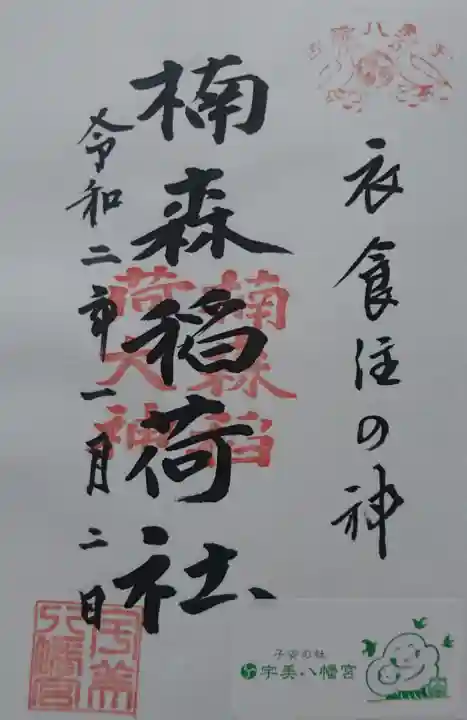 衣食住の神
楠森稲荷社
楠森稲
荷大神
令和二年一月二日
宇美
八幡宮
子安の杜
宇美八幡宮